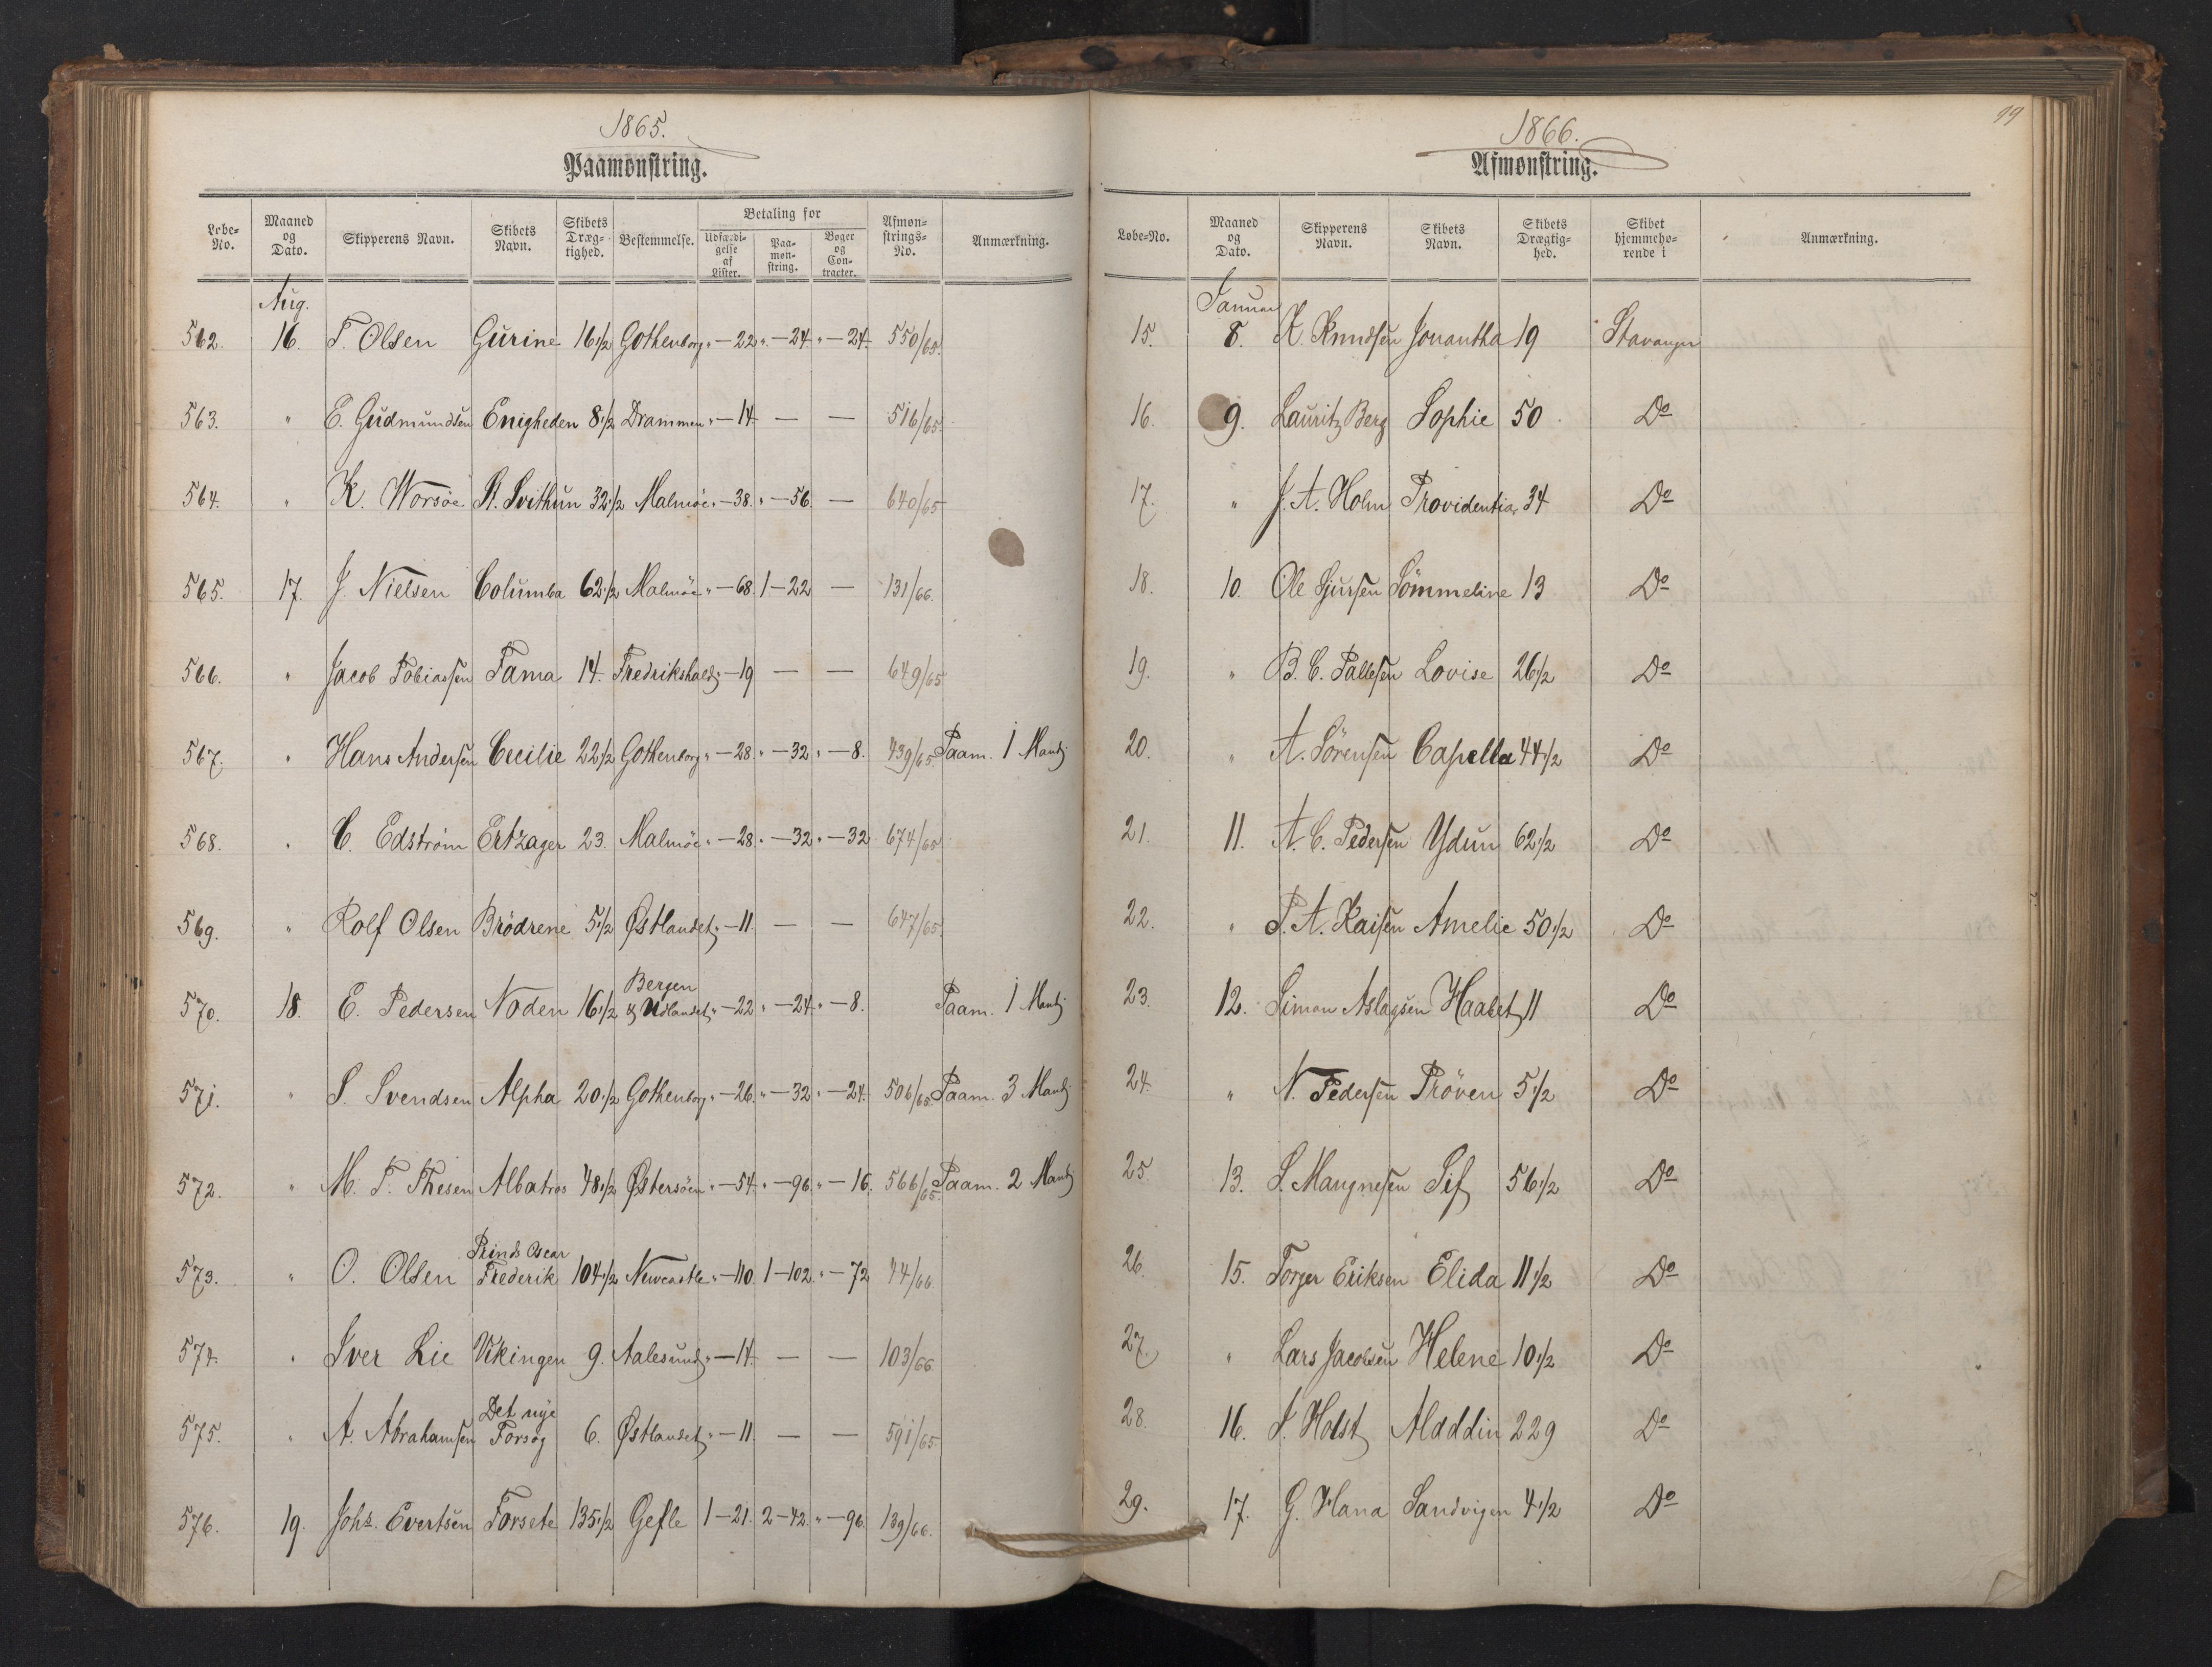 1865.
Paamønstring.
Løbe-No. Maaned og Dato. Skipperens Navn. Skibets Navn. Skibets Dræg-tighed. Bestemmelse. Betaling for Udfærdi-gelse af Lister. Paa-møn-string. Bøger og Con-tracter. Afmøn-strings-No. Anmærkning.
Aug.
562. 16. T. Olsen Gurine 16 1/2 Gothenborg " — 22 " — 24 " — 24. 550/65.
563. " E. Gudmundsen Enigheden 8 1/2 Drammen " — 14. — — 516/65.
564. " K. Worsøe St. Svithun 32 1/2 Malmøe " — 38. " — 56. — 640/65
565. 17. J. Nielsen Columba 62 1/2 Malmøe " — 68. 1 — 22 — 131/66.
566. " Jacob Tobiassen Fama 14. Fredrikshald " — 19 — — 649/65
567. " Hans Andersen Cecilie 22 1/2 Gothenborg " — 28. " — 32 " — 8. 439/65. Paam. 1 Mand
568. " C. Edstrøm Ertzager 23. Malmøe " — 28. " — 32 " — 32 674/65
569. " Rolf Olsen Brödrene 5 1/2 Østlandet " — 11. — — 647/65.
570. 18. E. Pedersen Noden 16 1/2 Bergen & Udlandet " — 22 " — 24. " — 8. Paam. 1 Mand
571. " S. Svendsen Alpha 20 1/2 Gothenborg " — 26. " — 32 " — 24. 506/65. Paam. 3 Mand
572. " M. T. Thesen Albatros 48 1/2 Østersöen " — 54. " — 96. " — 16. 566/65. Paam. 2 Mand
573. " O. Olsen Prinds Oscar Frederik 104 1/2 Newcastle " — 110. 1 — 102. " — 72 44/66.
574. " Iver Lie Vikingen 9. Aalesund " — 14. — — 103/66
575. " A. Abrahamsen Det nye Forsøg 6. Østlandet " — 11. — — 591/65.
576. 19. Johs. Evertsen Forsete 135 1/2 Gefle 1 — 21. 2 — 42. " — 96. 139/66.
99
1866.
Afmønstring.
Løbe-No. Maaned og Dato. Skipperens Navn. Skibets Navn. Skibets Drægtig-hed. Skibet hjemmehø-rende i Anmærkning.
Januar
15. 8. K. Knudsen Jonantha 19 Stavanger
16. 9. Lauritz Berg Sophie 50 Do
17. " J. A. Holm Providentia 34 Do
18. 10. Ole Sjursen Sömmeline 13 Do
19. " B. C. Pallesen Lovise 26 1/2 Do
20. " A. Sörensen Capella 44 1/2 Do
21. 11. A. C. Pedersen Ydun 62 1/2 Do
22. " P. A. Kaisen Amelie 50 1/2 Do
23. 12. Simon Aslagsen Haabet 11 Do
24. " N. Pedersen Pröven 5 1/2 Do
25 13. S. Maugnesen Sif 56 1/2 Do
26. 15. Torger Eriksen Elida 11 1/2 Do
27. " Lars Jacobsen Helene 10 1/2 Do
28. 16. J. Holst Aladdin 229 Do
29. 17. G. Hana Sandvigen 4 1/2 Do